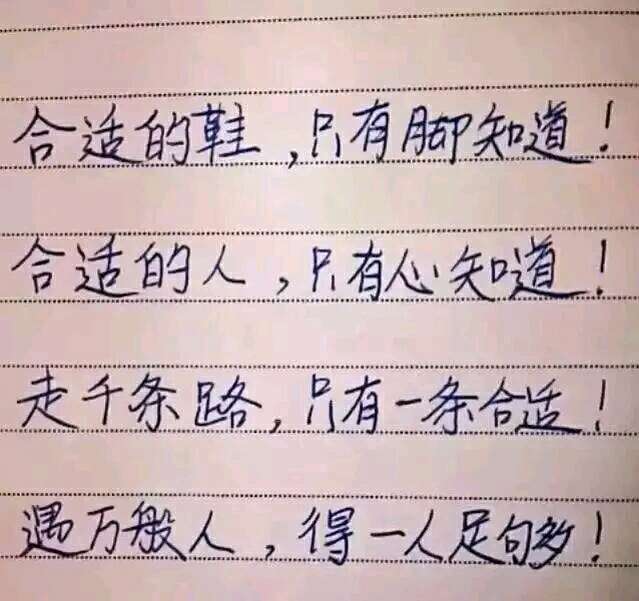 合适的鞋,只有脚知道!
合适的人,只有心知道!
走千条路,只有一条合适!
遇万般人,得一人足够!